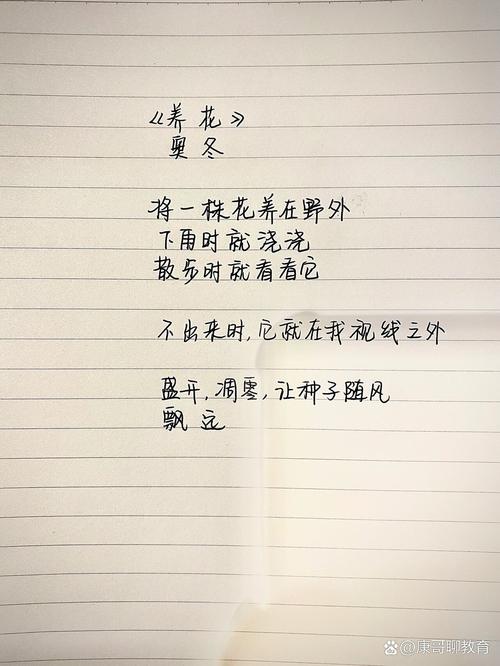 《养花》
奥冬
将一株花养在野外
下雨时就浇浇
散步时就看看它
不出来时,它就在我视线之外
盛开,凋零,让种子随风
飘远
康哥聊教育